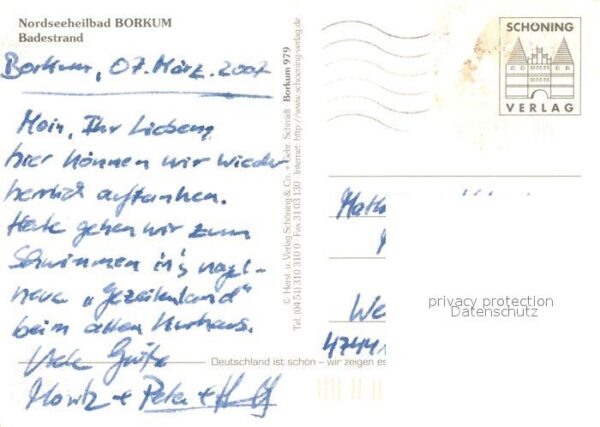 Nordseeheilbad BORKUM
Badestrand
Borkum, 07. März. 2007
Moin, Ihr Lieben,
hier können wir wieder
herrlich auftanken.
Heute gehen wir zum
Schwimmen in's nagel-
neue „Gezeitenland"
beim alten Kurhaus.
Viele Grüße
Moritz + Peter +
© Herst. u. Verlag Schöning & Co. + Gebr. Schmidt Borkum 979
Tel. (04 51) 310 310 0 · Fax 31 03 130 · Internet: http://www.schoening-verlag.de
Deutschland ist schön – wir zeigen es
SCHÖNING
VERLAG
We
47441
privacy protection
Datenschutz